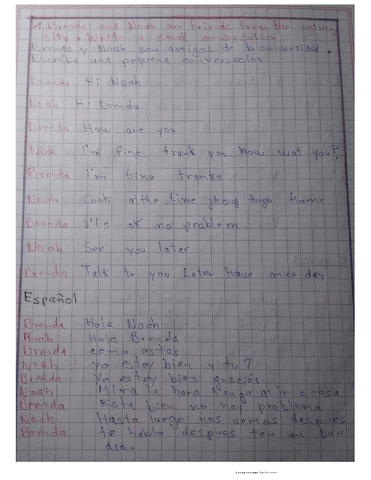 1. Brenda and Noah are friends from the univer
sity. Write a small conversation
Brenda y Noah son amigos de la universidad.
Escribe una pequeña conversacion
Brenda Hi Noah
Noah Hi Brenda
Brenda How are you
Noah I'm fine thank you
Brenda I'm fine thanks
Noah Look at the time home
Brenda It's ok no problem
Noah See you later
Brenda Talk to you later have a nice day
Español
Brenda Hola Noah
Noah Hola Brenda
Brenda como estas
Noah yo estoy bien y tu?
Brenda Yo estoy bien gracias
Noah Mira la hora tengo q ir a casa
Brenda Esta bien no hay problema
Noah Hasta luego nos vemos despues
Brenda te hablo despues ten un buen
dia.